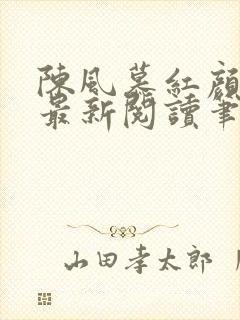 陳風慕紅顏
最新閱讀筆
山田孝太郎